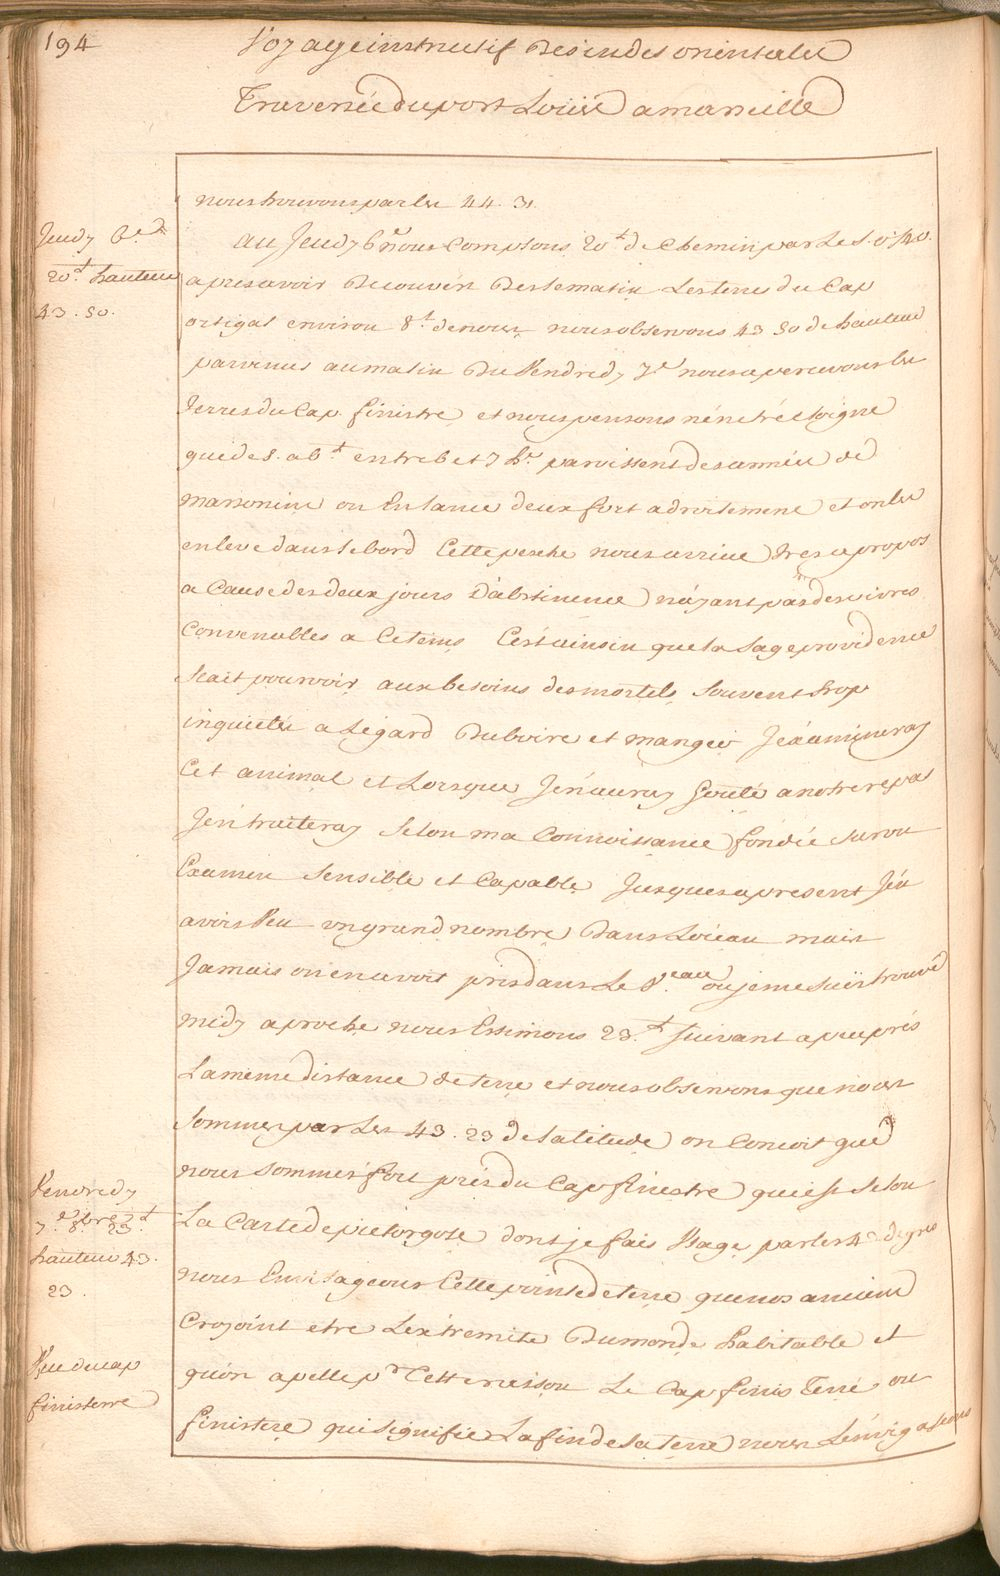 194
Voyage instructif des indes orientales
Traversée du port Loüis a marseille
nous trouvons par les 44. 31.
Jeudy 6e
20t hauteur
43. 50.
au Jeudy 6e nous Comptons 20t de Chemin par Le S. O 1/4 O.
apres avoir Decouvert Des le matin Les terres du Cap
ortigal environ 8t de nous nous observons 43 50 de hauteur
parvenus au matin Du Vendredy 7e nous apercevons les
Terres du Cap finistre et nous pensons n'én etré eloigné
que de 5. a 6t entre 6 et 7 hr paroissent des armées de
marsonins on En lance deux fort adroitement et on les
enleve dans le bord Cette pesche nous arrive tres apropos
a Cause des deux jours D'abstinence n'áyant pas des vivres
Convenables a Ce tems C'ést ainsin que la Sage providence
Scait pourvoir aux besoins des mortels Souvent trop
inquietés a L'égard Du boire et manger J'éxamineray
Cet animal et Lorsque J'én auray gouté a notre repas
J'én traiteray Selon ma Connoissance fondée sur un
Examen Sensible et Capable Jusques apresent J'én
avois Veu un grand nombre Dans Loiéau mais
Jamais on en avoit pris dans Le Veau ou je me suis trouvé
midy aproche nous Estimons 23t suivant a peu prés
La méme distance de terre et nous observons que nous
Sommes par Les 43. 23 de latitude on Concoit que
nous Sommes fort prés du Cap finestre qui est Selon
Vendredy
7e 8bre 23t
hauteur 43.
23.
La Carte de pietergote dont je fais Usage par les 43 degres
nous Envisageons Cette pointe de terre que nos anciens
Croyoint etre L'éxtremite Du monde habitable et
Vue du cap
finisterre
qu'on apelle pr Cette raison Le Cap finis Terre ou
finistere qui Signifie La fin de la terre nous Lénvigasions